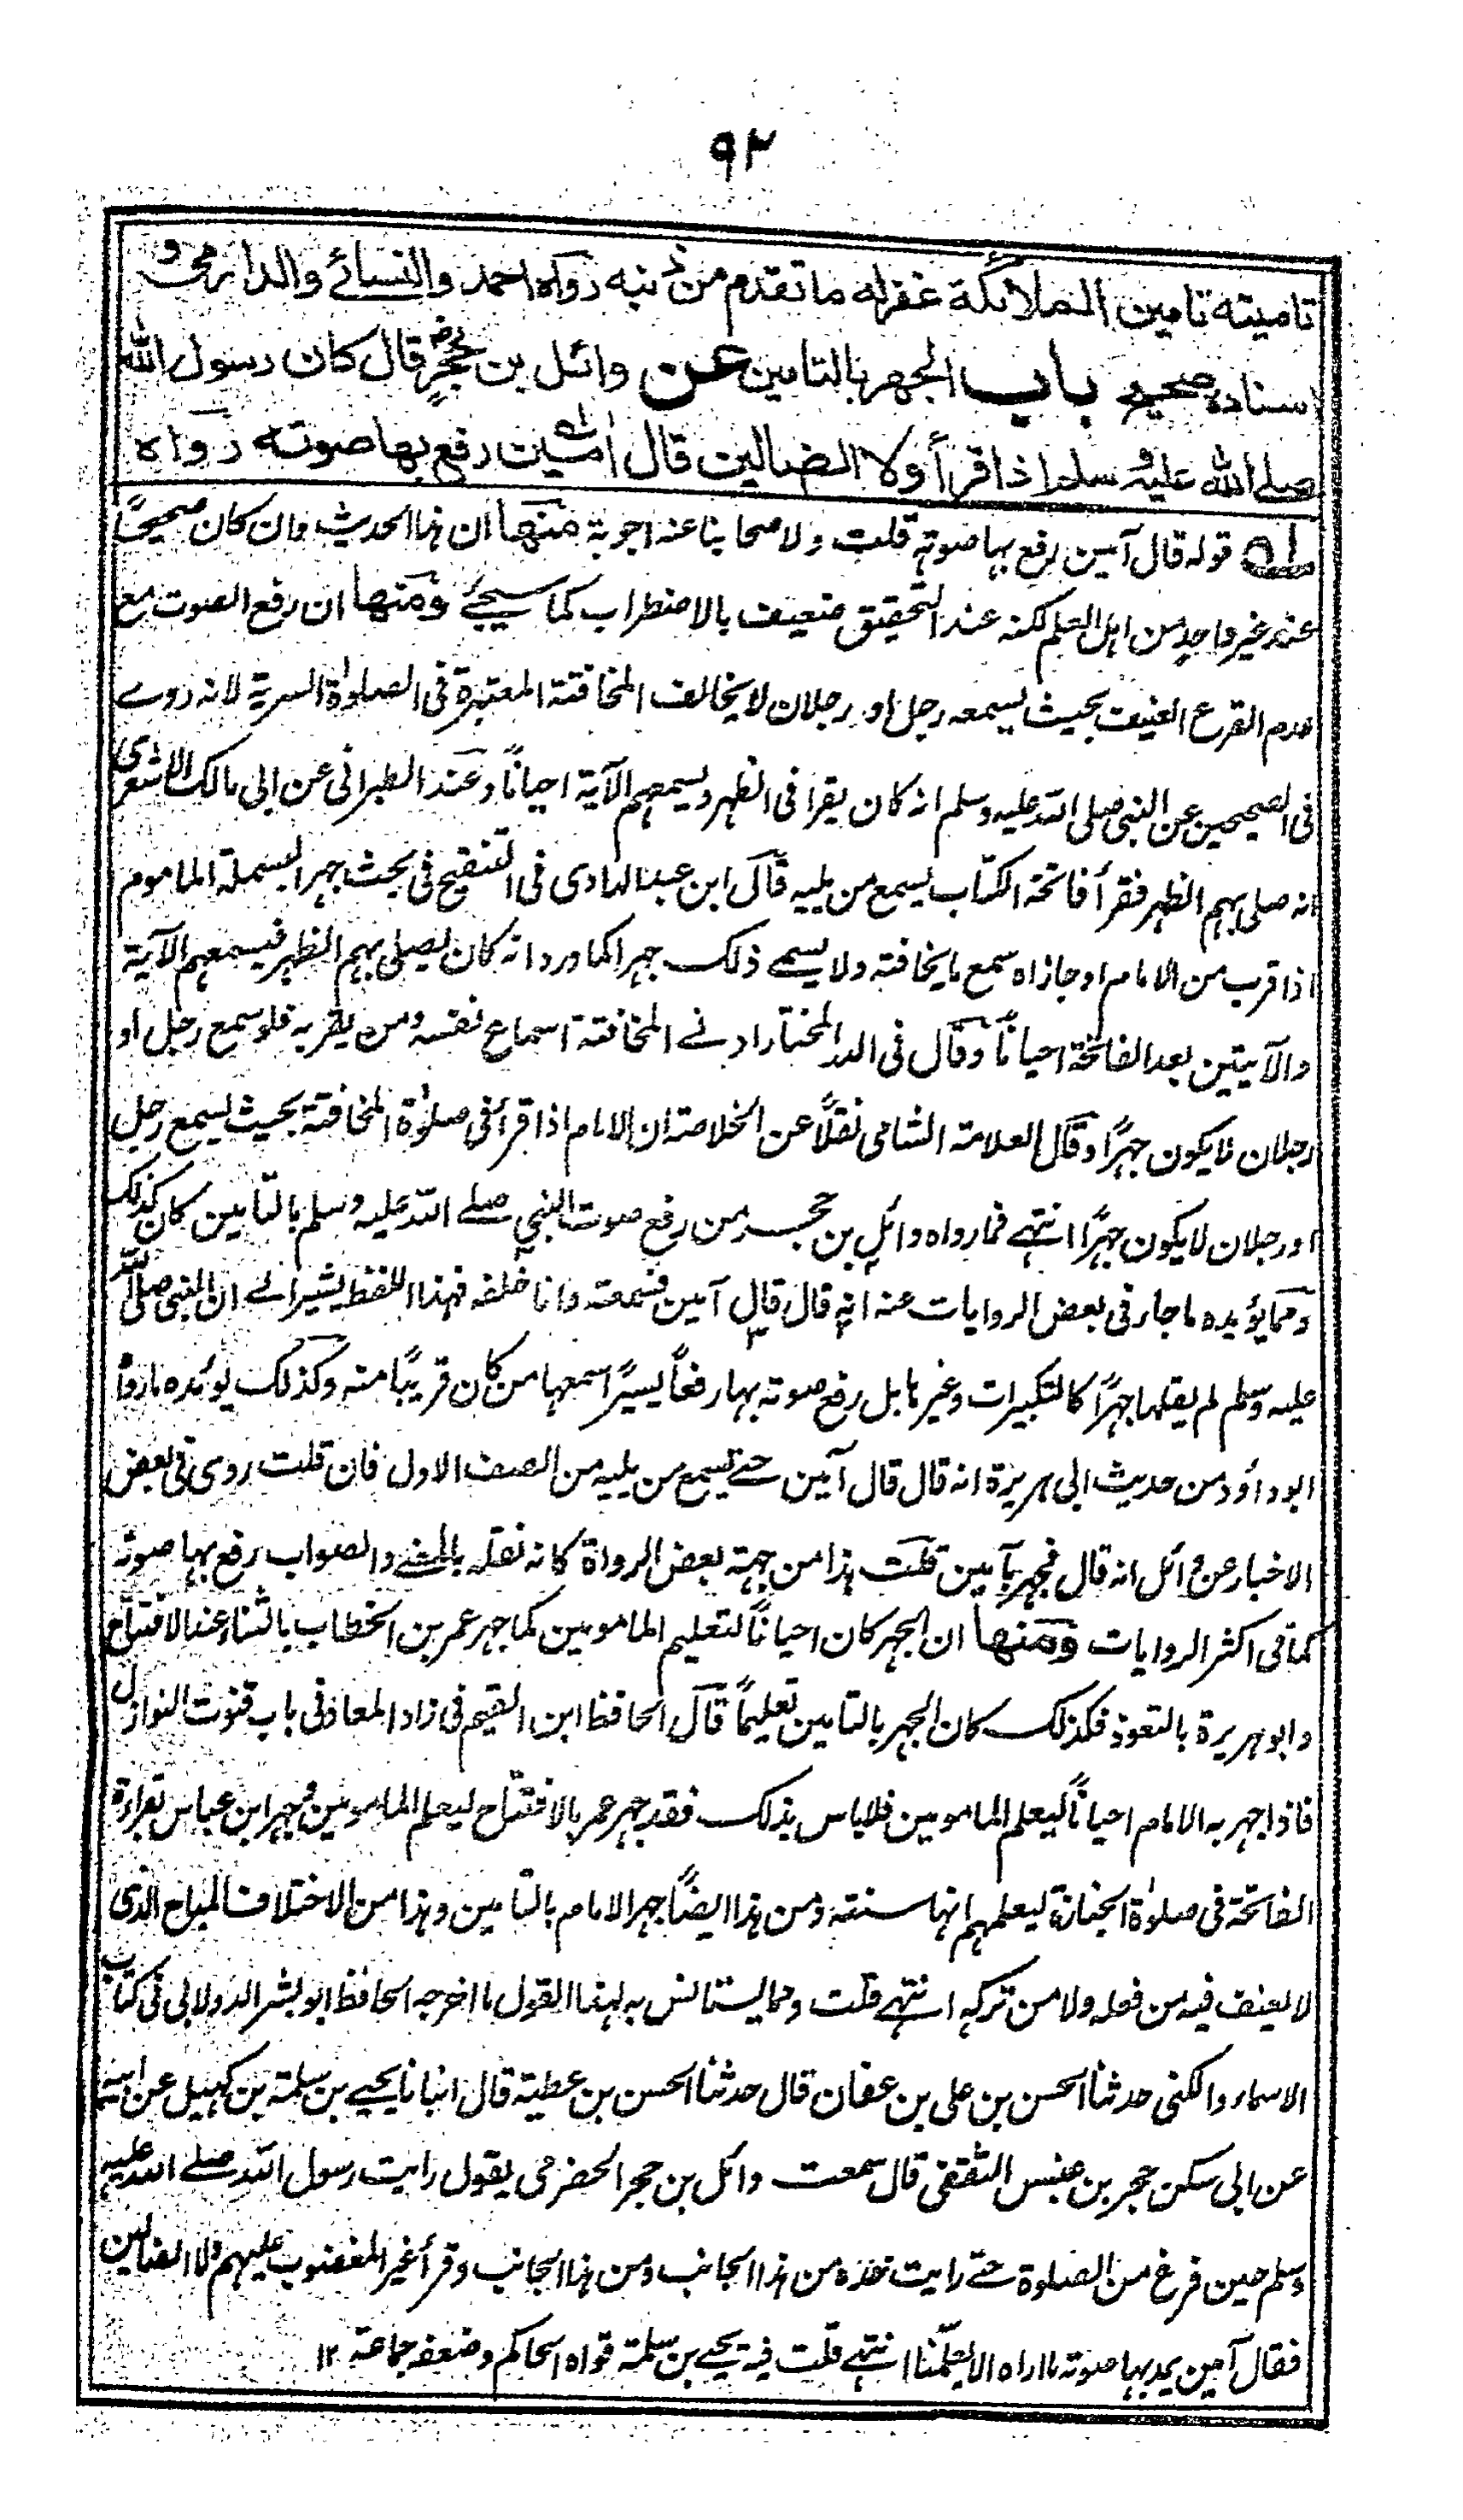 ٩٢
تامينه تامين الملائكة غفرله ما تقدم من ذنبه رواه احمد والنسائے والدارمی و
اسناده صحيح باب الجهر بالتامين عن وائل بن حجر رض قال كان رسول الله
صلے الله عليه وسلم اذا قرأ ولا الضالين قال آمين رفع بها صوته رواه
له قوله قال آمين رفع بها صوته قلت ولاصحابنا عنه اجوبة منها ان هذا الحديث وان كان صحيحًا
عند غير واحد من اهل العلم لكنه عند التحقيق ضعيف بالاضطراب كما سيجئ ومنها ان رفع الصوت مع
عدم القرع العنيف بحيث يسمعه رجل او رجلان لا يخالف المخافتة المعتبرة فى الصلوٰة السرية لانه روے
فى الصحيحين عن النبى صلى الله عليه وسلم انه كان يقرأ فى الظهر ويسمعهم الآية احيانًا وعند الطبرانى عن ابى مالك الاشعرى
انه صلى بهم الظهر فقرأ فاتحة الكتاب يسمع من يليه قال ابن عبد الهادى فى التنقيح فى بحث جهر البسملة الماموم
اذا قرب من الامام او حاذاه سمع ما يخافته ولا يسمے ذلك جهرا كما ورد انه كان يصلى بهم الظهر فيسمعهم الآية
والآيتين بعد الفاتحة احيانًا وقال فى الدر المختار ادنے المخافتة اسماع نفسه ومن يقربه فلو سمع رجل او
رجلان لا يكون جهرًا وقال العلامة الشامى نقلًا عن الخلاصة ان الامام اذا قرأ فى صلوٰة المخافتة بحيث يسمع رجل
او رجلان لا يكون جهرًا انتهے فما رواه وائل بن حجر من رفع صوت النبى صلے الله عليه وسلم بالتأمين كان كذلك
ومما يؤيده ما جاء فى بعض الروايات عنه انه قال قال آمين فسمعته وانا خلفه فهذا اللفظ يشير الے ان النبى صلى الله
عليه وسلم لم يقلها جهرًا كالتكبيرات وغيرها بل رفع صوته بها رفعًا يسيرًا اسمعها من كان قريبًا منه وكذلك يؤيده ما رواه
ابوداؤد من حديث ابى هريرة انه قال قال آمين حتے يسمع من يليه من الصف الاول فان قلت روى فى بعض
الاخبار عن وائل انه قال فجهر بآمين قلت هذا من جهة بعض الرواة كانه نقله بالمعنے والصواب رفع بها صوته
كما فى اكثر الروايات ومنها ان الجهر كان احيانًا لتعليم المامومين كما جهر عمر بن الخطاب بالثناء عند الافتتاح
وابو هريرة بالتعوذ فكذلك كان الجهر بالتامين تعليمًا قال الحافظ ابن القيم فى زاد المعاد فى باب قنوت النوازل
فاذا جهر به الامام احيانًا ليعلم المامومين فلا باس بذلك فقد جهر عمر بالافتتاح ليعلم المامومين وجهر ابن عباس بقراءة
الفاتحة فى صلوٰة الجنازة ليعلمهم انها سنة ومن هذا ايضًا جهر الامام بالتأمين وهذا من الاختلاف المباح الذى
لا يعنف فيه من فعله ولا من تركه انتهے قلت ومما يستانس به لهذا القول ما اخرجه الحافظ ابو بشر الدولابى فى كتاب
الاسماء والكنى حدثنا الحسن بن على بن عفان قال حدثنا الحسن بن عطية قال انبانا يحيے بن سلمة بن كهيل عن ابيه
عن ابى سكن حجر بن عنبس الثقفى قال سمعت وائل بن حجر الحضرمى يقول رايت رسول الله صلے الله عليه
وسلم حين فرغ من الصلوة حتے رايت خده من هذا الجانب ومن هذا الجانب وقرأ غير المغضوب عليهم ولا الضالين
فقال آمين يمد بها صوته ما اراه الا ليعلّمنا انتهے قلت فيه يحيے بن سلمة قواه الحاكم وضعفه جماعة ١٢